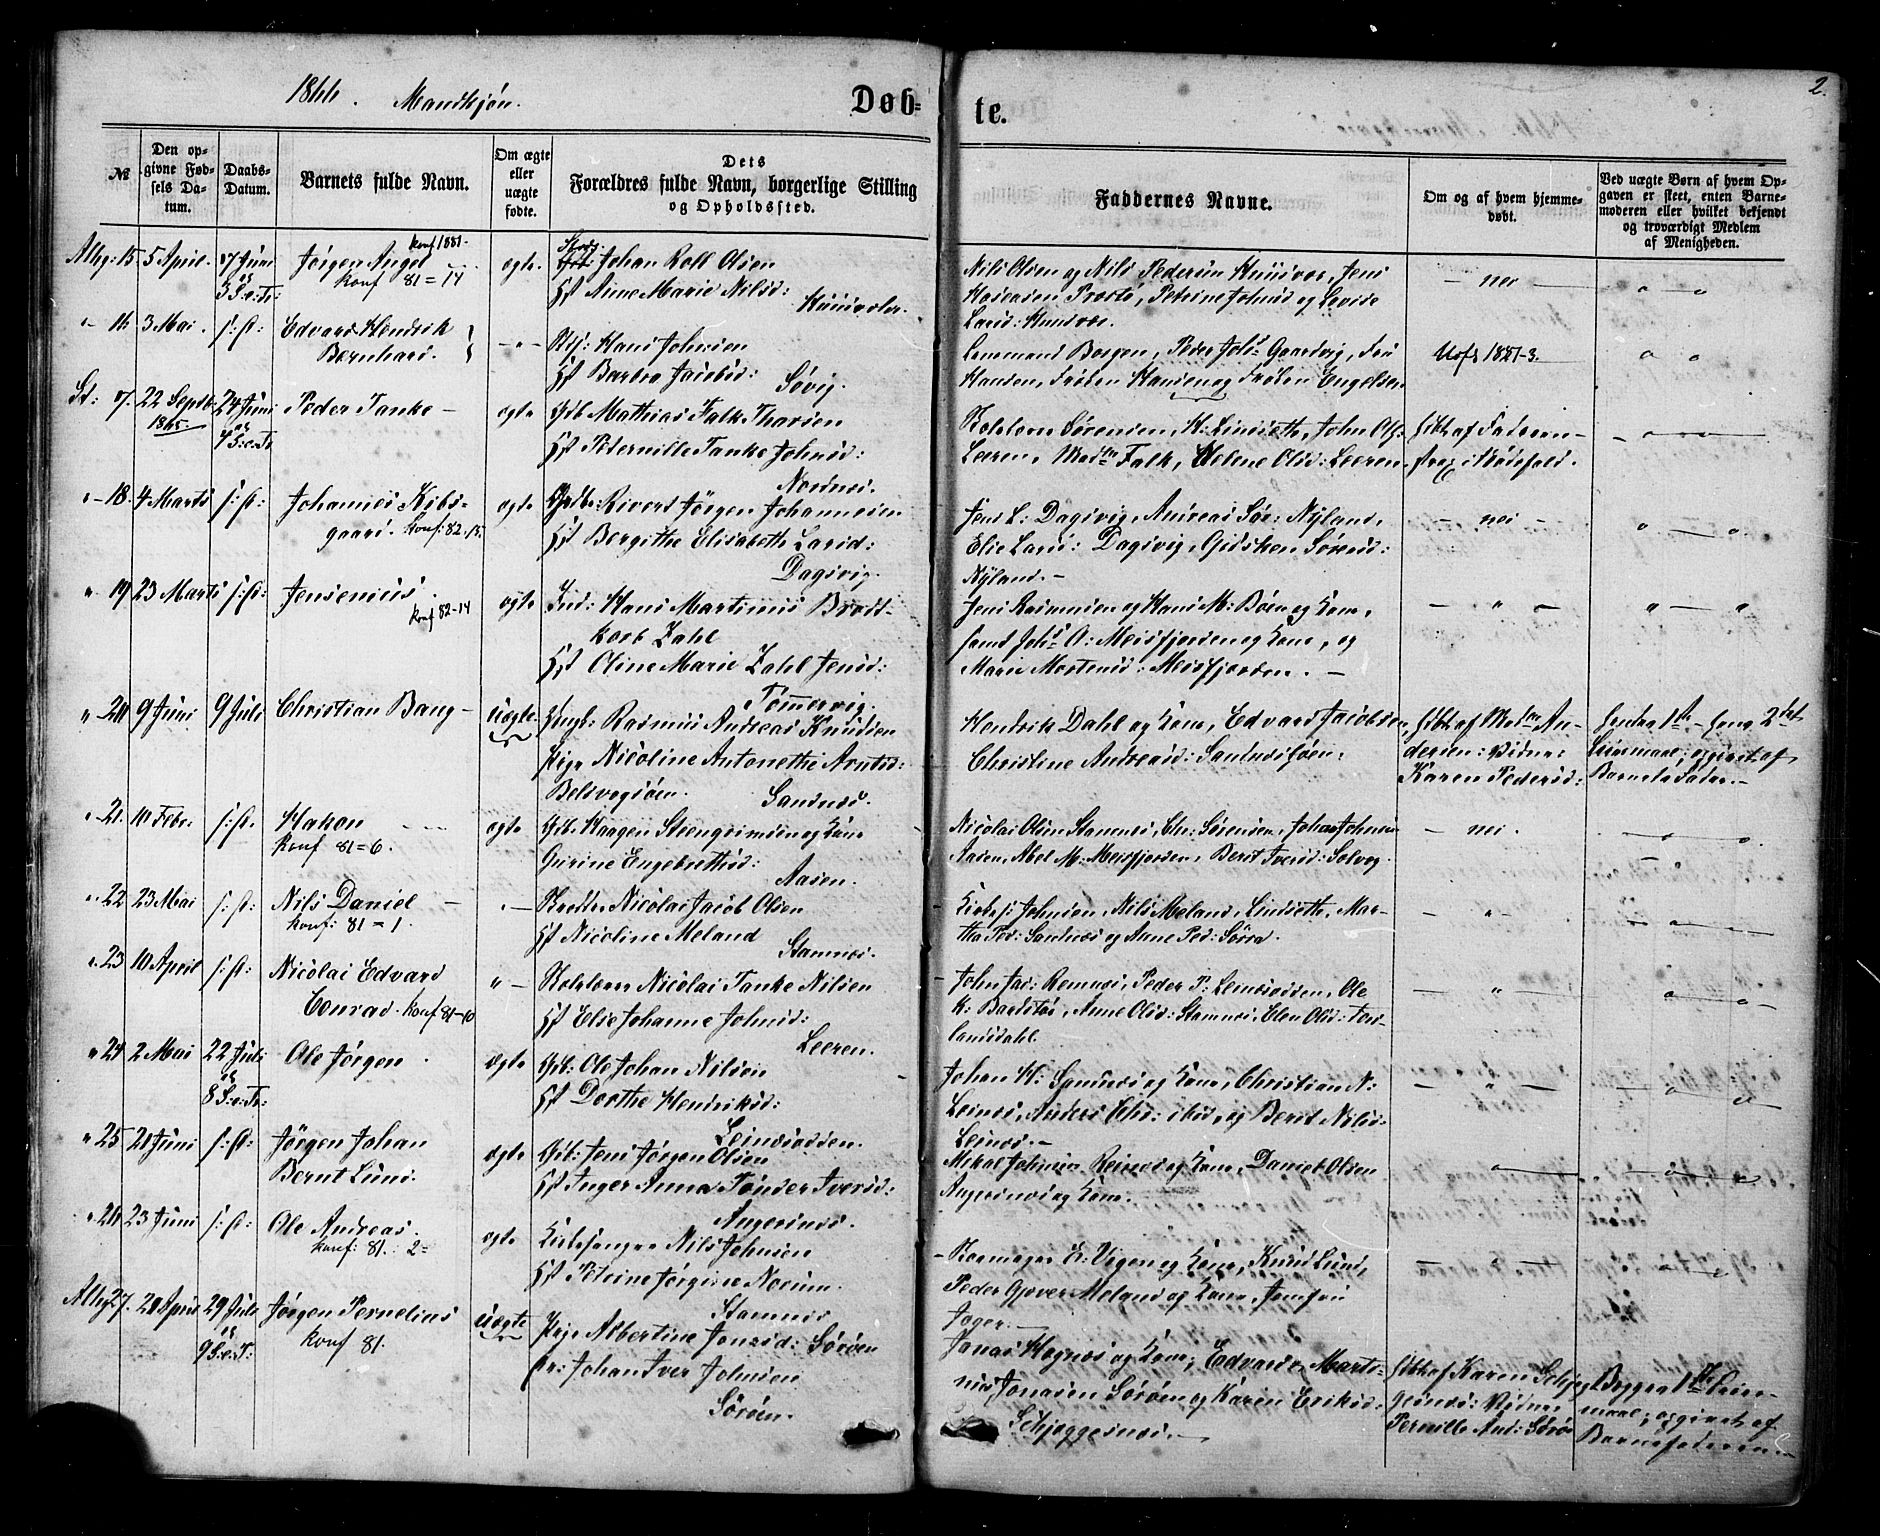 1866. Mandkjøn.
Døb-
te.
2.
№
Den op-
givne Fød-
sels Da-
tum.
Daabs-
Datum.
Barnets fulde Navn.
Om ægte
eller
uægte
fødte.
Dets
Forældres fulde Navn, borgerlige Stilling
og Opholdssted.
Faddernes Navne.
Om og af hvem hjemme-
døbt.
Ved uægte Børn af hvem Op-
gaven er skeet, enten Barne-
moderen eller hvilket bekjendt
og troværdigt Medlem
af Menigheden.
Alhg: 15. 5 April. 17 Juni
3 S. e. Tr:
Jørgen Angel konf 1881.
konf 81=14
ægte
Johan Roll Olsen
Hst Anne Marie Nilsd:
Nils Olsen og Nils Pedersen
Prestø, Petrine Johnsd og
Larsd:
- nei -
" 16. 3 Mai. s: d:
Edvard Hendrik
Bernhard.
Hans Johnsen
Hst Barbra Jacobsd:
Søvig.
Lensmand Borgen, Peder Johs Gaardvig, Fru
Hansen, Frøken Hansen og Frøken Engelsen
Udf 1881-3.
St: 17. 22 Septb. 24 Juni
1865.
4 S. e. Tr
Peder Tanke -
ægte
Gdb Mathias Falk Tharsen
Hst Pedernille Tanke Johnsd:
Nordnæs.
Sørensen, H: Lindseth, John Ols:
Leeren, Madm Falk, Helene Olsd: Leeren.
"-18. 4 Marts s: d:
Johannes Kibs-
gaard. konf: 82-15.
ægte
Rivert Jørgen Johannesen
Hst Bergithe Elisabeth Larsd:
Dagsvig.
Jens L: Dagsvig, Andreas Sør: Nyland,
Elie Larsd: Dagsvig, Gidsken Sørensd:
Nyland. -
- nei -
" 19 23 Marts s: d:
Jensenius.
konf 82-14
ægte
Ind: Hans Martinus Brodt-
korb Zahl
Hst Oline Marie Zahl Jensd:
Tømmervig.
Jens Rasmusen og Hans M: Böen og Kone,
samt Johs A: Meisfjorden og Kone, og
Marie Mortensd: Meisfjorden. -
- " -
" - "
" 20 9 Juni 9 Juli
Christian Bang -
uægte
Ungk: Rasmus Andreas Knudsen
Pige Nicoline Antonette Arntsd:
Belsvogsøen. Sandnæs.
Hendrik Dahl og Kone, Edvard Jacobsen,
Christine Andreasd: Sandnæssjøen.
Hdbt af Madm An-
dersen: Vidne:
Karen Pedersd:
hendes 1te - hans 2det
Leiermaal; opgivet af
Barnets Fader. -
"-21. 10 Febr. s: d.
Hakon
konf 81=6.
ægte
Gdb: Haagen Steengrimsen og Kone
Gurine Engebrethsd:
Aasen.
Nicolai Olsen Stamnæs, Chr: Sørensen, Johan Johnsen
Aasen, Abel M: Meisfjorden, Berit Iversd: Solvog.
- nei.
" 22 23 Mai s: d:
Nils Daniel -
konf: 81=1.
Nicolai Jacob Olsen
Hst Nicoline Meland
Stamnæs.
Kirkes: Johnsen, Nils Meland, Lindseth, Mar-
tha Ped: Sandnæs og Anne Ped: Sørra.
- " -
" 23 10 April s: d:
Nicolai Edvard
Conrad. konf 81-10
Nicolai Tanke Nilsen
Hst Elie Johanne Johnsd:
Leeren.
John Jac: Remnæs, Peder P: Leinesodden, Ole
K: Bardstø, Anne Olsd: Stamnæs, Elen Olsd: For-
landsdahl.
- " -
" 24 2 Mai 22 Juli
8 S: e: Tr:
Ole Jørgen.
ægte
Gdb: Ole Johan Nilsen
Hst Dorthe Hendriksd:
Leinesodden.
Johan H: Sandnæs og Kone, Christian N:
Leines, Anders Chr: ibid, og Berit Nilsd:
Leines. -
- " -
" 25 20 Juni s: d:
Jørgen Johan
Bernt Lund.
ægte
Gdb: Jens Jørgen Olsen
Hst Inger Anna Tønder Iversd:
Angersnæs.
Mikal Johnsen Reinæs og Kone, Daniel Olsen
Angersnæs og Kone.
" 26 23 Juni s: d:
Ole Andreas.
konf: 81. 2=
ægte
Kirkesanger Nils Johnsen
Hst Petrine Jørgine Norum.
Stamnæs
Skomager E: Vigen og Kone, Knud Lund,
Peder Gjøver Meland og Kone, Jomfru
Jager. -
Alhg 27. 20 April 29 Juli
9 S. e. T:
Jørgen Pernelius
konf 81.
uægte
Pige Albertine Jonsd: Sørøen
Johan Iver Johnsen
Sørøen.
Jonas Hognæs og Kone, Edvard Marti-
nus Jonasen Sørøen og Karen Eriksd:
Schjeggesnæs. -
Hdbt af Karen Schjeg
gesnæs: Vidne:
Pernille And: Sørøe
Begges 1te Leier-
maal; opgivet af
Barnefaderen. -